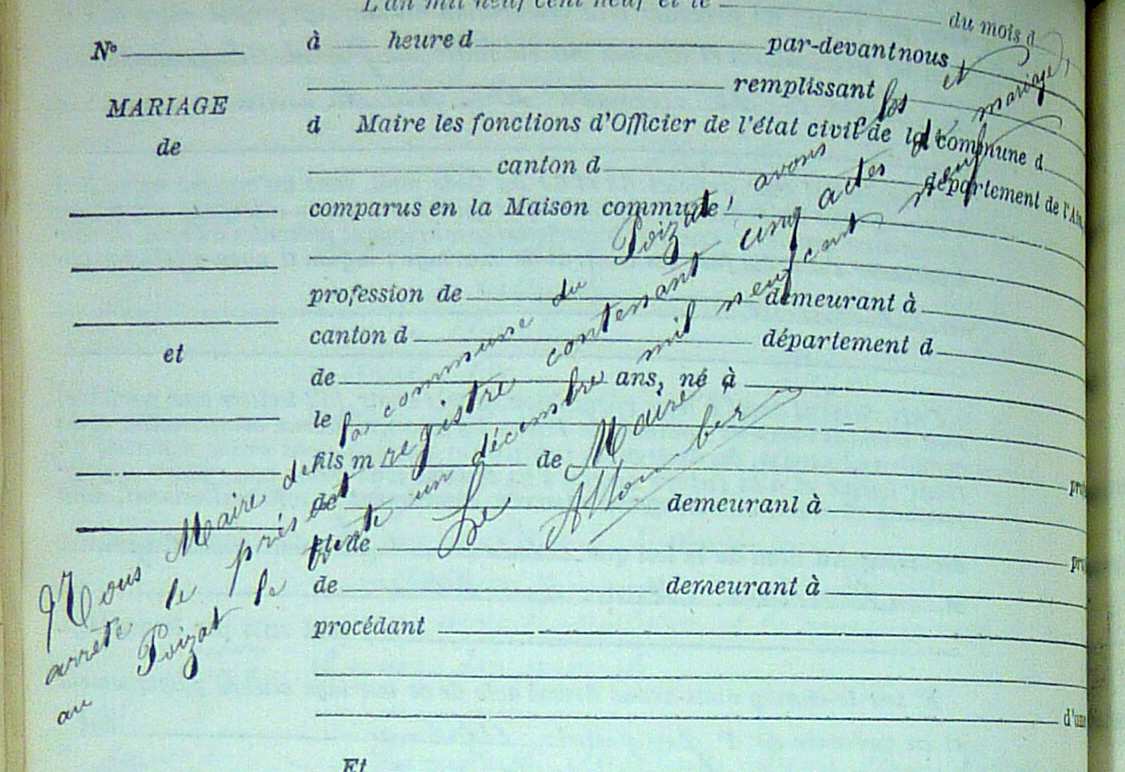 L'an mil neuf cent neuf et le
du mois d
N° à heure d par-devant nous
remplissant
MARIAGE d Maire les fonctions d'Officier de l'état civil de la commune d
de canton d département de l'Ain,
comparus en la Maison commune :
profession de demeurant à
canton d département d
et
de ans, né à
le
fils m de
de demeurant à
et de
de demeurant à
procédant
d'un
Et
Nous Maire de la commune du Poizat avons et
arrêté le présent registre contenant cinq actes de mariage,
au Poizat le trente un décembre mil neuf cent neuf
Le Maire